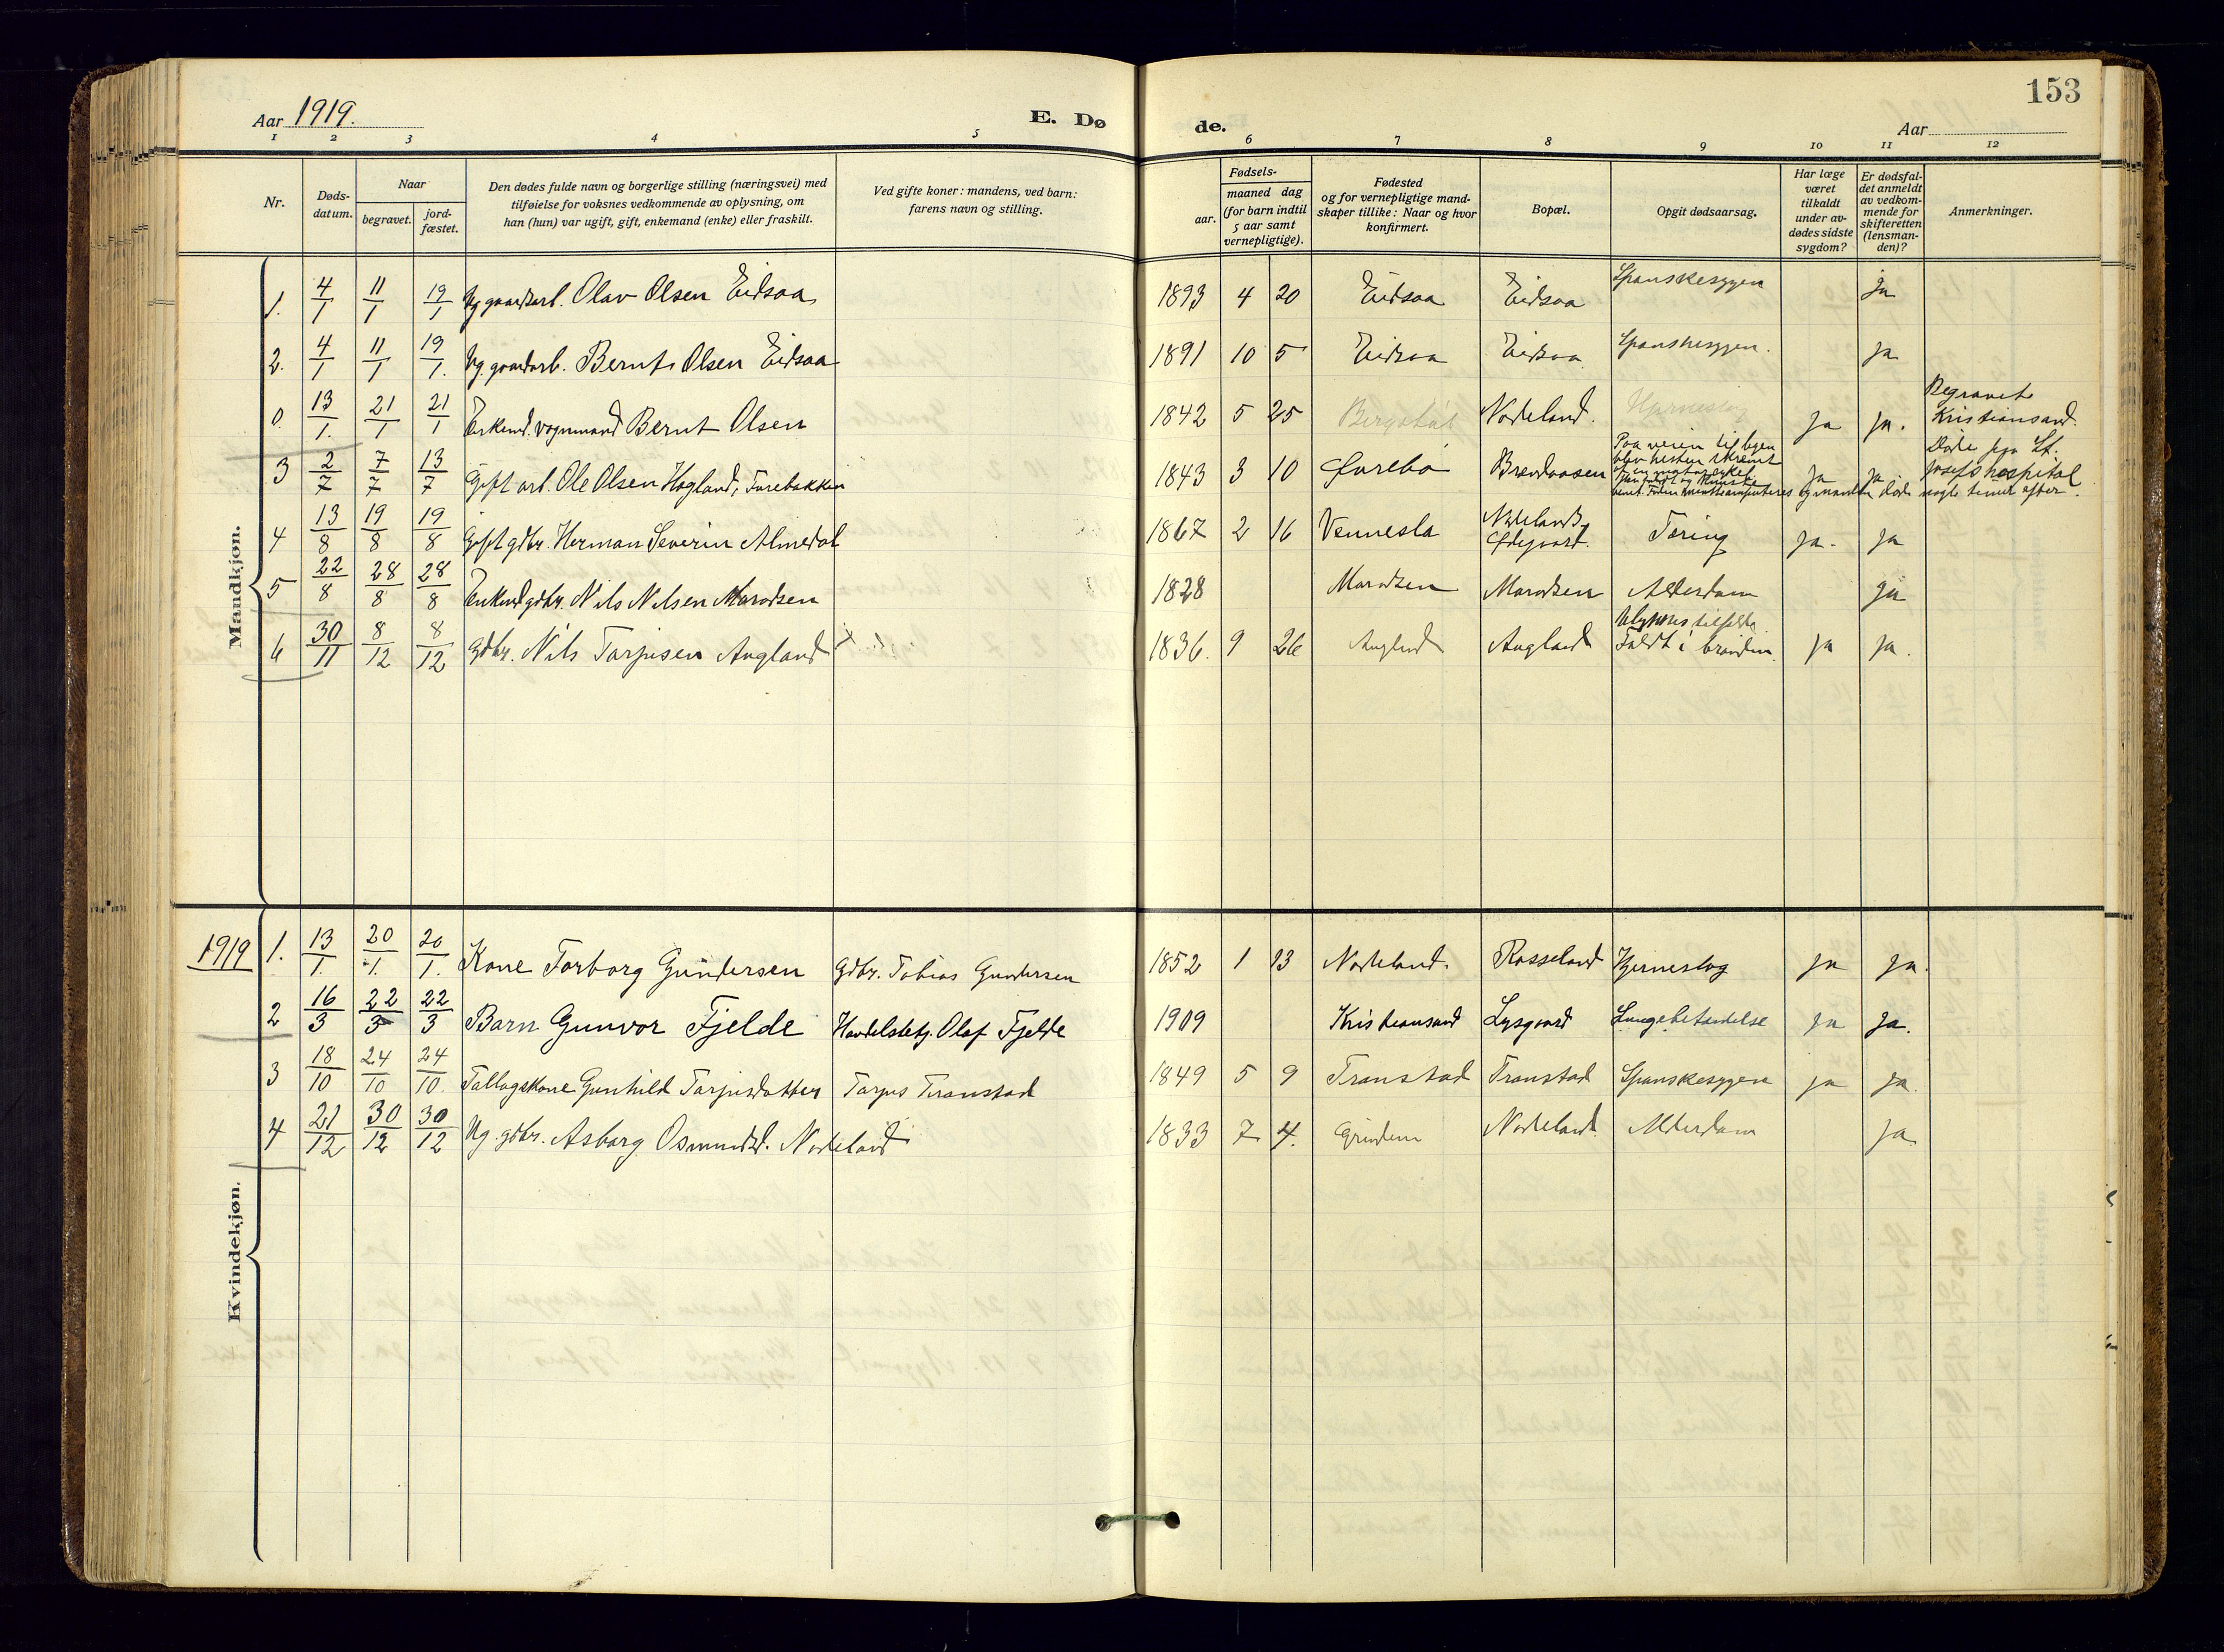 153
Aar 1919.
E. Dø de.
Aar
1 2 3 4 5 6 7 8 9 10 11 12
Nr.
Døds-
datum.
Naar
begravet.
jord-
fæstet.
Den dødes fulde navn og borgerlige stilling (næringsvei) med
tilføielse for voksnes vedkommende av oplysning, om
han (hun) var ugift, gift, enkemand (enke) eller fraskilt.
Ved gifte koner: mandens, ved barn:
farens navn og stilling.
Fødsels-
aar.
maaned dag
(for barn indtil
5 aar samt
vernepligtige).
Fødested
og for vernepligtige mand-
skaper tillike: Naar og hvor
konfirmert.
Bopæl.
Opgit dødsaarsag.
Har læge
været
tilkaldt
under av-
dødes sidste
sygdom?
Er dødsfal-
det anmeldt
av vedkom-
mende for
skifteretten
(lensman-
den)?
Anmerkninger.
Mandkjøn.
1. 4/1 11/1 19/1 Ug gaardsarb. Olav Olsen Eidsaa 1893 4 20 Eidsaa Eidsaa Spanskesygen ja
2. 4/1 11/1 19/1. Ug. gaardarb. Bernt Olsen Eidsaa 1891 10 5 Eidsaa Eidsaa Spanskesygen. ja
0. 13/1. 21/1 21/1 Enkemd. vognmand Bernt Olsen 1842 5 25 Nodeland. Hjerneslag ja ja. Begravet i
Kristiansand.
3 2/7 7/7 13/7 Gift arb. Ole Olsen Hogland, Furebakken 1843 3 10 Øvrebø Brendaasen Paa veien til byen
blev hesten skræmt
av en motorcykel ja ja Døde paa St.
Josefs hospital
nogle timer efter.
4 13/8 19/8 19/8 Gift gdbr. Herman Severin Almedal 1867 2 16 Vennesla Nodeland,
Ødegaard. Tæring ja. ja
5 22/8 28/8 28/8 Enkemd gdbr. Nils Nilsen Marodsen 1828 Marodsen Marodsen Alderdom ja
6 30/11 8/12 8/12 Gdbr. Nils Tarjusen Augland 1836. 9 26 Augland Augland Ulykkestilfælde.
Faldt i brønden. ja ja.
1919
Kvindekjøn.
1. 13/1. 20/1. 20/1. Kone Torborg Gundersen Gdbr. Tobias Gundersen 1852 1 13 Nodeland. Rosseland Hjerneslag ja ja.
2 16/3 22/3 22/3 Barn Gunvor Fjelde Handelsbetj. Olaf Fjelde 1909 Kristiansand Lysgaard Lungebetændelse ja ja.
3 18/10 24/10 24/10. Føllagskone Gunhild Tarjusdatter Tarjus Transtad 1849 5 9 Transtad Transtad Spanskesygen ja ja.
4 21/12 30/12 30/12 Ug. gdbr. Asborg Osmundsd. Nodeland 1833 7 4. Grindem Nodeland. Alderdom ja.